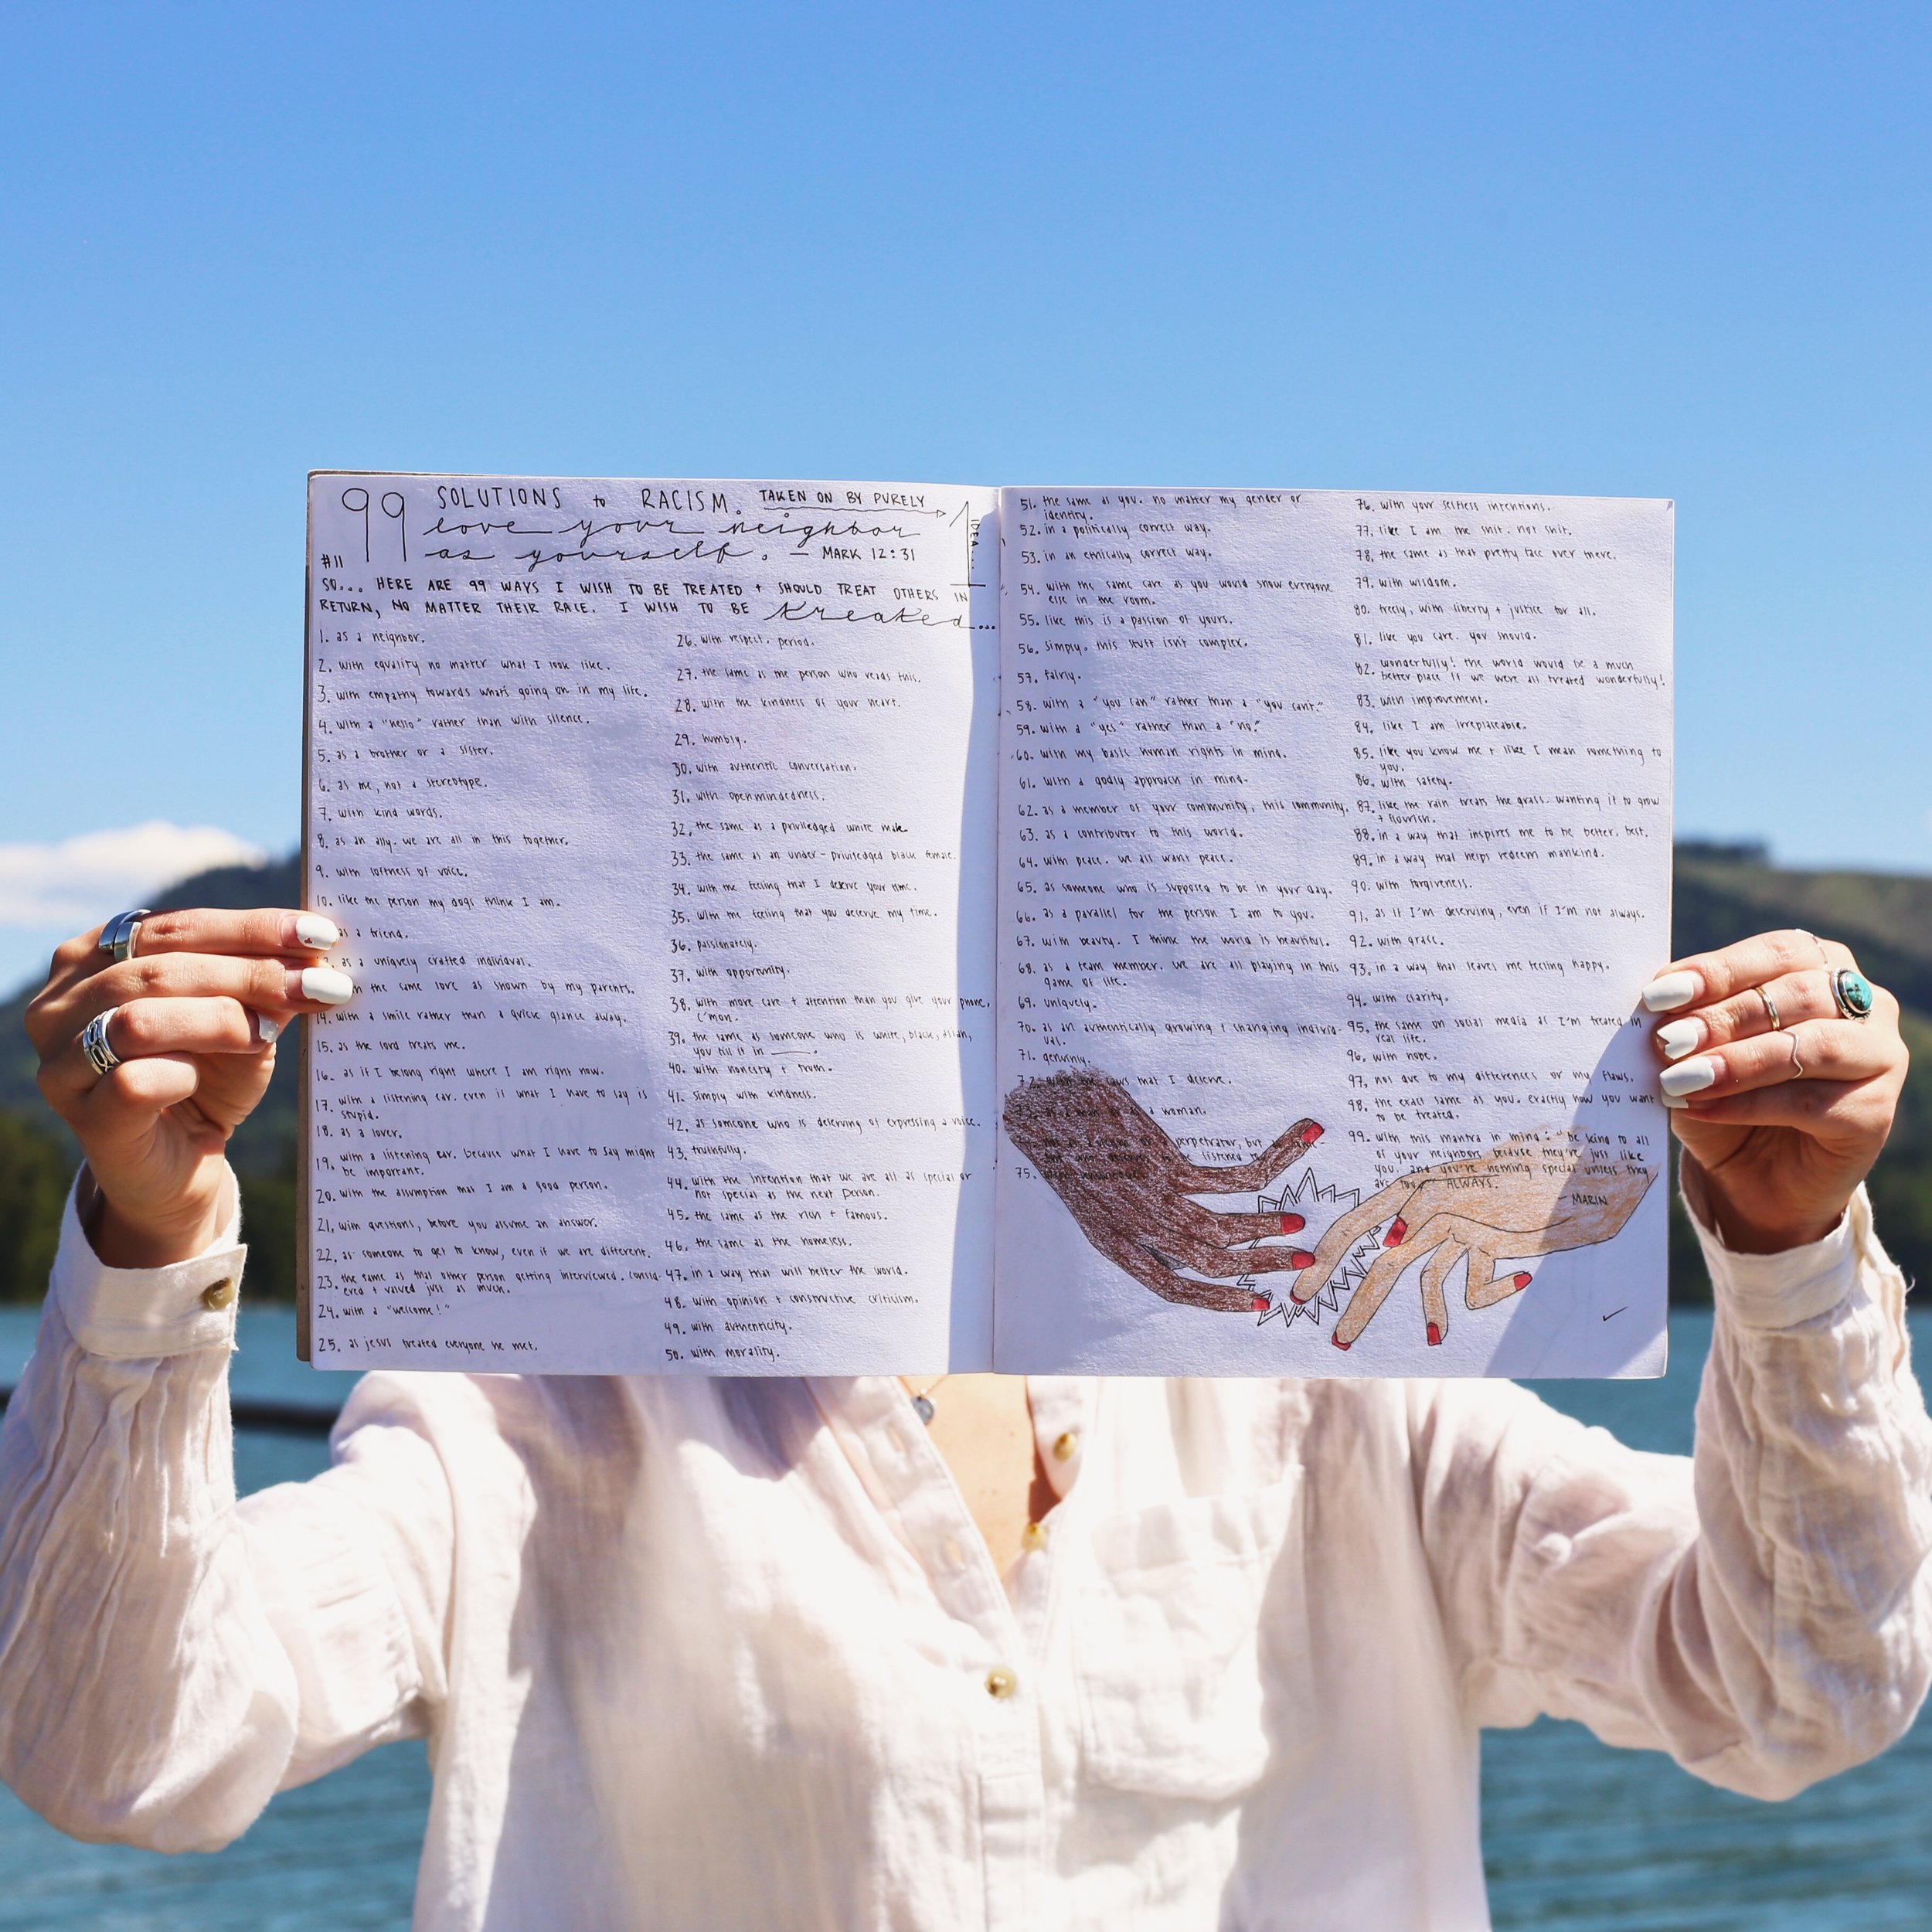 99 SOLUTIONS to RACISM. TAKEN ON BY PURELY 1 IDEA...
love your neighbor
as yourself. — MARK 12:31
#11
SO... HERE ARE 99 WAYS I WISH TO BE TREATED + SHOULD TREAT OTHERS IN
RETURN, NO MATTER THEIR RACE. I WISH TO BE treated...
1. as a neighbor.
2. with equality no matter what I look like.
3. with empathy towards what's going on in my life.
4. with a "hello" rather than with silence.
5. as a brother or a sister.
6. as me, not a stereotype.
7. with kind words.
8. as an ally. we are all in this together.
9. with softness of voice.
10. like the person my dogs think I am.
as a friend.
as a uniquely crafted individual.
the same love as shown by my parents.
14. with a smile rather than a quick glance away.
15. as the lord treats me.
16. as if I belong right where I am right now.
17. with a listening ear. even if what I have to say is
stupid.
18. as a lover.
19. with a listening ear. because what I have to say might
be important.
20. with the assumption that I am a good person.
21. with questions, before you assume an answer.
22. as someone to get to know, even if we are different.
23. the same as that other person getting interviewed. consid-
ered + valued just as much.
24. with a "welcome!"
25. as jesus treated everyone he met.
26. with respect. period.
27. the same as the person who reads this.
28. with the kindness of your heart.
29. humbly.
30. with authentic conversation.
31. with openmindedness.
32. the same as a priviledged white male
33. the same as an under-priviledged black female.
34. with the feeling that I deserve your time.
35. with the feeling that you deserve my time.
36. passionately.
37. with opportunity.
38. with more care + attention than you give your phone,
c'mon.
39. the same as someone who is white, black, asian,
you fill it in ____.
40. with honesty + truth.
41. simply with kindness.
42. as someone who is deserving of expressing a voice.
43. truthfully.
44. with the intention that we are all as special or
not special as the next person.
45. the same as the rich + famous.
46. the same as the homeless.
47. in a way that will better the world.
48. with opinion + constructive criticism.
49. with authenticity.
50. with morality.
51. the same as you. no matter my gender or
identity.
52. in a politically correct way.
53. in an ethically correct way.
54. with the same care as you would show everyone
else in the room.
55. like this is a passion of yours.
56. simply. this stuff isn't complex.
57. fairly.
58. with a "you can" rather than a "you can't."
59. with a "yes" rather than a "no."
60. with my basic human rights in mind.
61. with a godly approach in mind.
62. as a member of your community, this community.
63. as a contributor to this world.
64. with peace. we all want peace.
65. as someone who is supposed to be in your day.
66. as a parallel for the person I am to you.
67. with beauty. I think the world is beautiful.
68. as a team member. we are all playing in this
game of life.
69. uniquely.
70. as an authentically growing + changing individ-
ual.
71. genuinly.
72. with the laws that I deserve.
a woman.
perpetrator, but
listened to
75.
76. with your selfless intentions.
77. like I am the shit. not shit.
78. the same as that pretty face over there.
79. with wisdom.
80. freely, with liberty + justice for all.
81. like you care. you should.
82. wonderfully! the world would be a much
better place if we were all treated wonderfully!
83. with improvement.
84. like I am irreplaceable.
85. like you know me + like I mean something to
you.
86. with safety.
87. like the rain treats the grass. wanting it to grow
+ flourish.
88. in a way that inspires me to be better. best.
89. in a way that helps redeem mankind.
90. with forgiveness.
91. as if I'm deserving, even if I'm not always.
92. with grace.
93. in a way that leaves me feeling happy.
94. with clarity.
95. the same on social media as I'm treated in
real life.
96. with hope.
97. not due to my differences or my flaws.
98. the exact same as you. exactly how you want
to be treated.
99. with this mantra in mind: "be kind to all
of your neighbors because they're just like
you. and you're nothing special unless they
are too." ALWAYS.
- MARIN